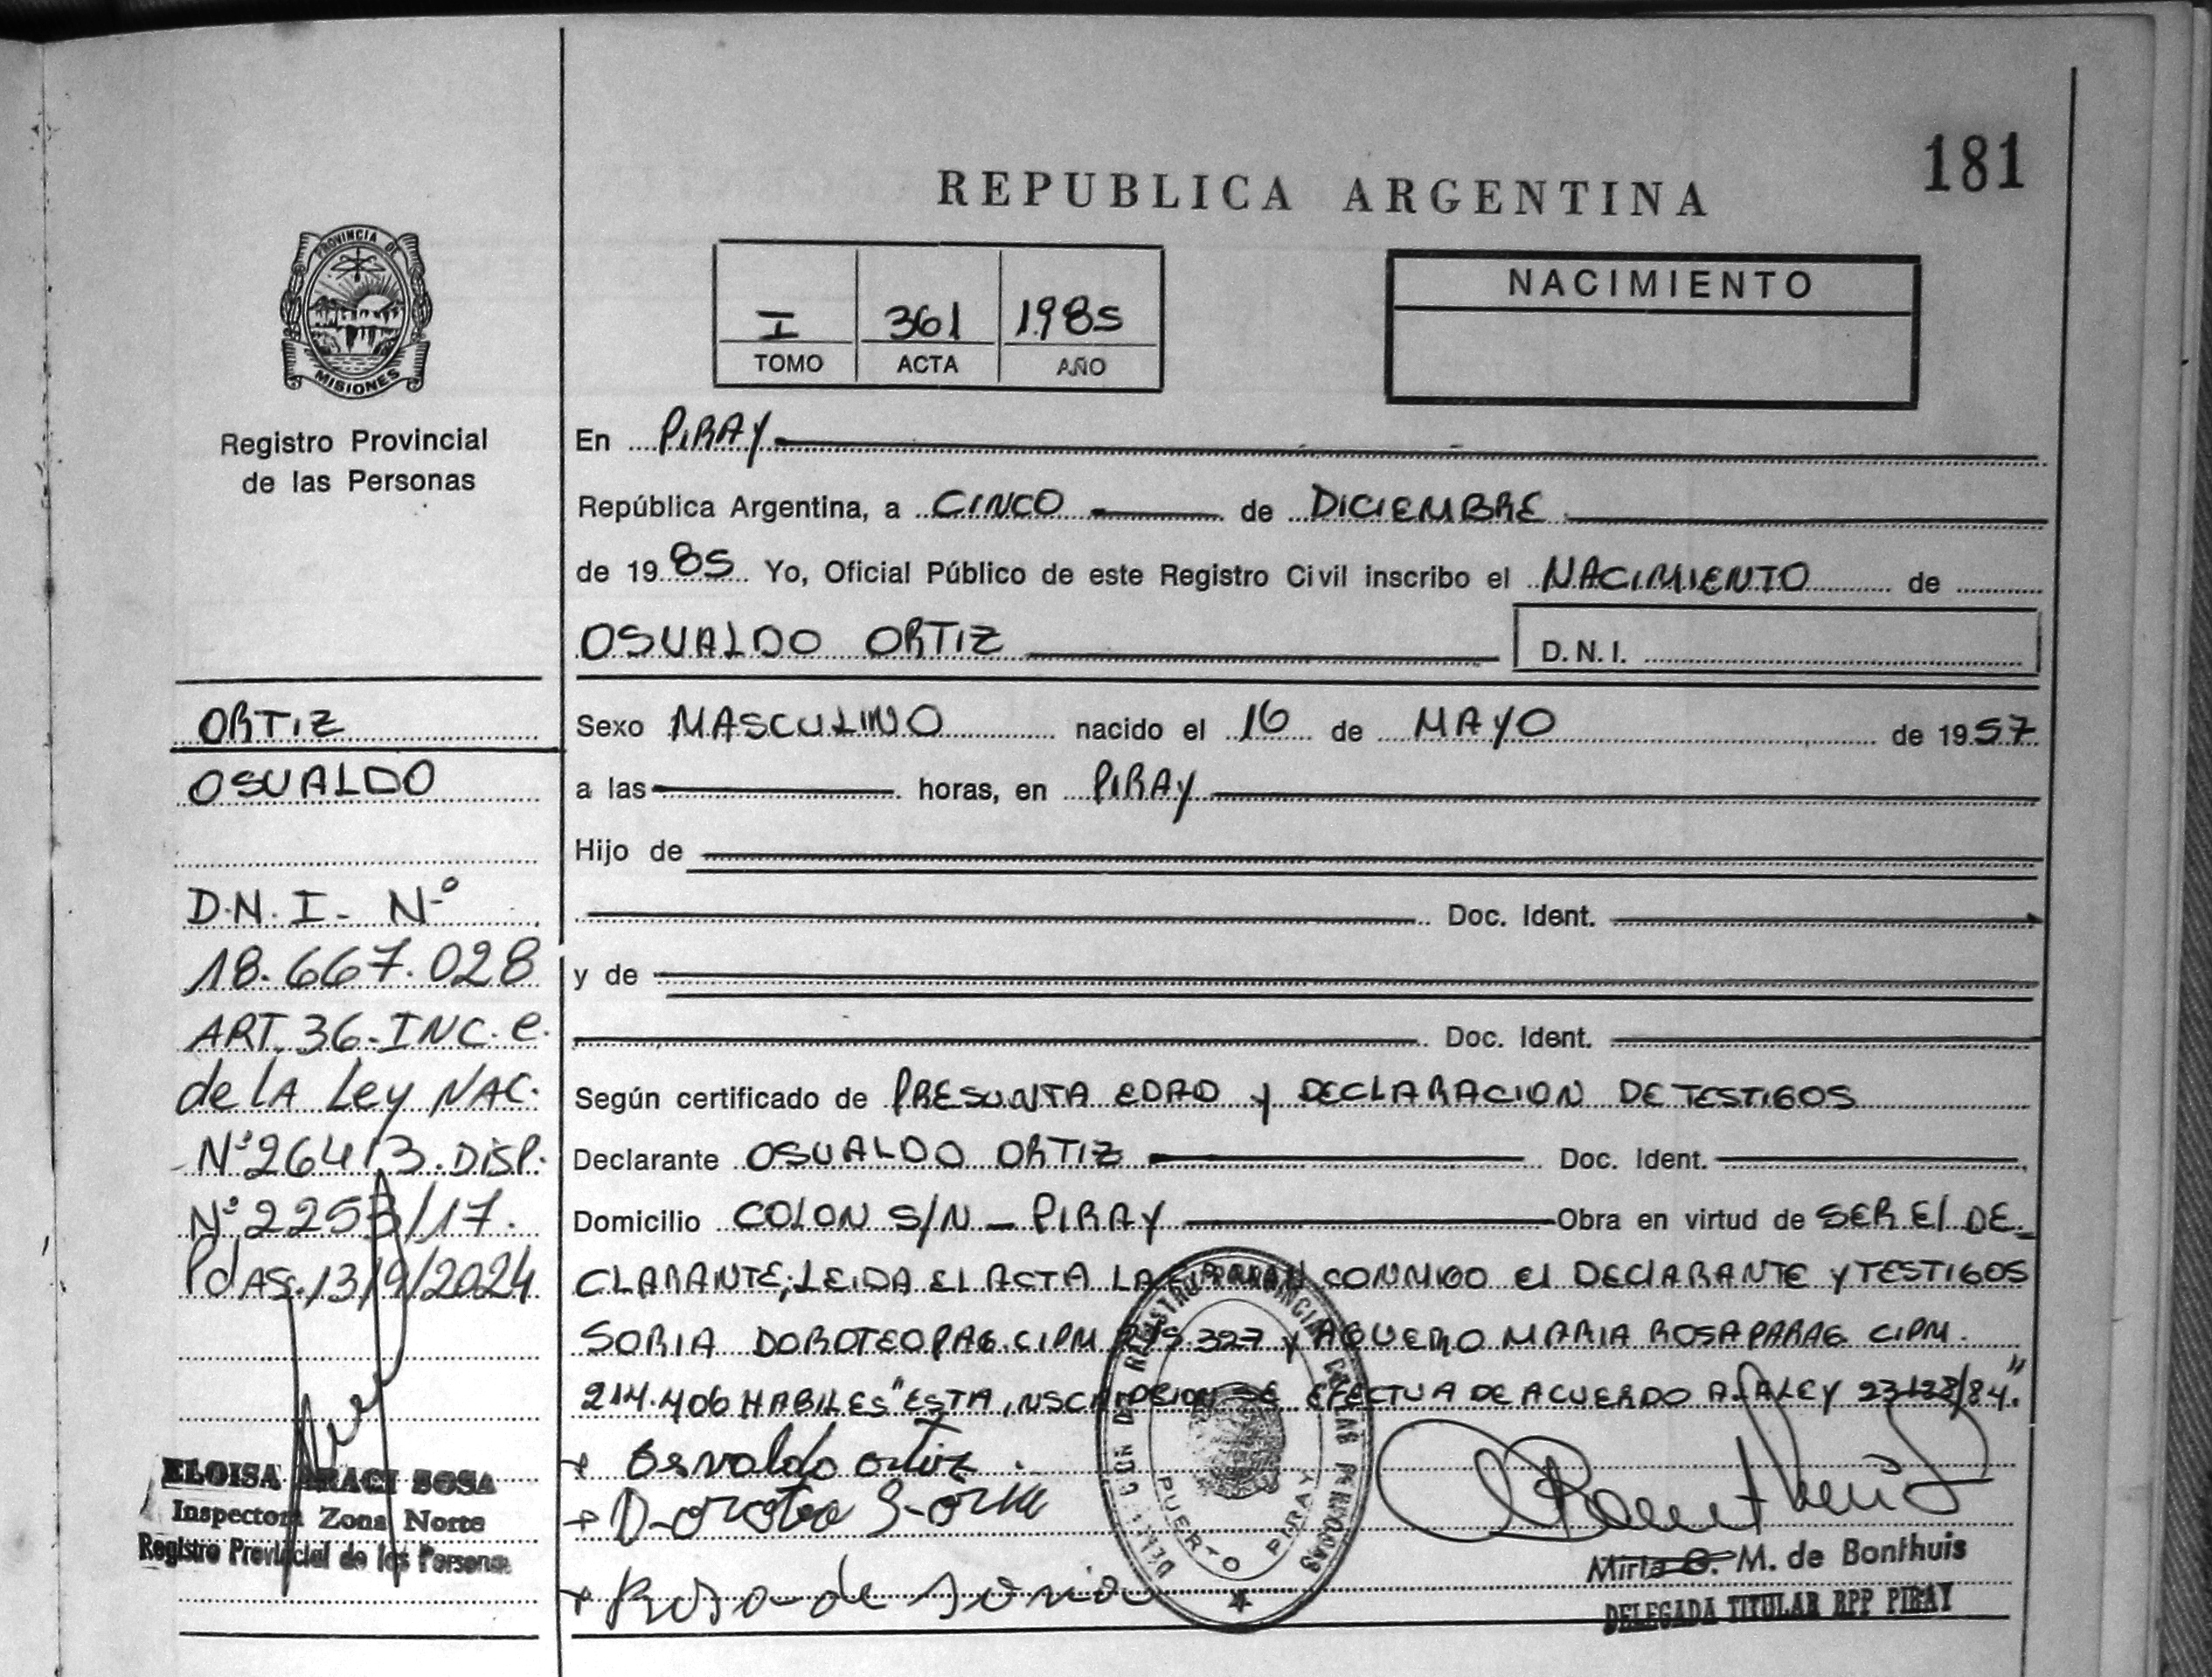 181
REPUBLICA ARGENTINA
PROVINCIA DE
MISIONES
Registro Provincial
de las Personas
I 361 1985
TOMO ACTA AÑO
NACIMIENTO
En PIRAY
República Argentina, a CINCO de DICIEMBRE
de 1985 Yo, Oficial Público de este Registro Civil inscribo el NACIMIENTO de
OSVALDO ORTIZ D.N.I.
ORTIZ
OSVALDO
D.N.I- Nº
18.667.028
ART. 36-INC. e.
de LA Ley NAC.
Nº 26413. DISP.
Nº 2253/17.
Pdas. 13/9/2024
ELOISA ARACI SOSA
Inspectora Zona Norte
Registro Provincial de las Personas
Sexo MASCULINO nacido el 16 de MAYO de 1957
a las horas, en PIRAY
Hijo de
Doc. Ident.
y de
Doc. Ident.
Según certificado de PRESUNTA EDAD y DECLARACION DE TESTIGOS
Declarante OSVALDO ORTIZ Doc. Ident.
Domicilio COLON S/N - PIRAY Obra en virtud de SER El DE-
CLARANTE; LEIDA EL ACTA LA FIRMAN CONMIGO El DECLARANTE y TESTIGOS
SORIA DOROTEO PAG. CIPM 327 y AGUERO MARIA ROSA PARAG. CIPM.
214.406 HABILES "ESTA INSCRIPCION SE EFECTUA DE ACUERDO A LA LEY /84."
Osvaldo Ortiz
Doroteo Soria
Rosa de Soria
DELEGACION DEL REGISTRO PROVINCIAL DE LAS PERSONAS
PUERTO PIRAY
Mirta G. M. de Bonthuis
DELEGADA TITULAR RPP PIRAY